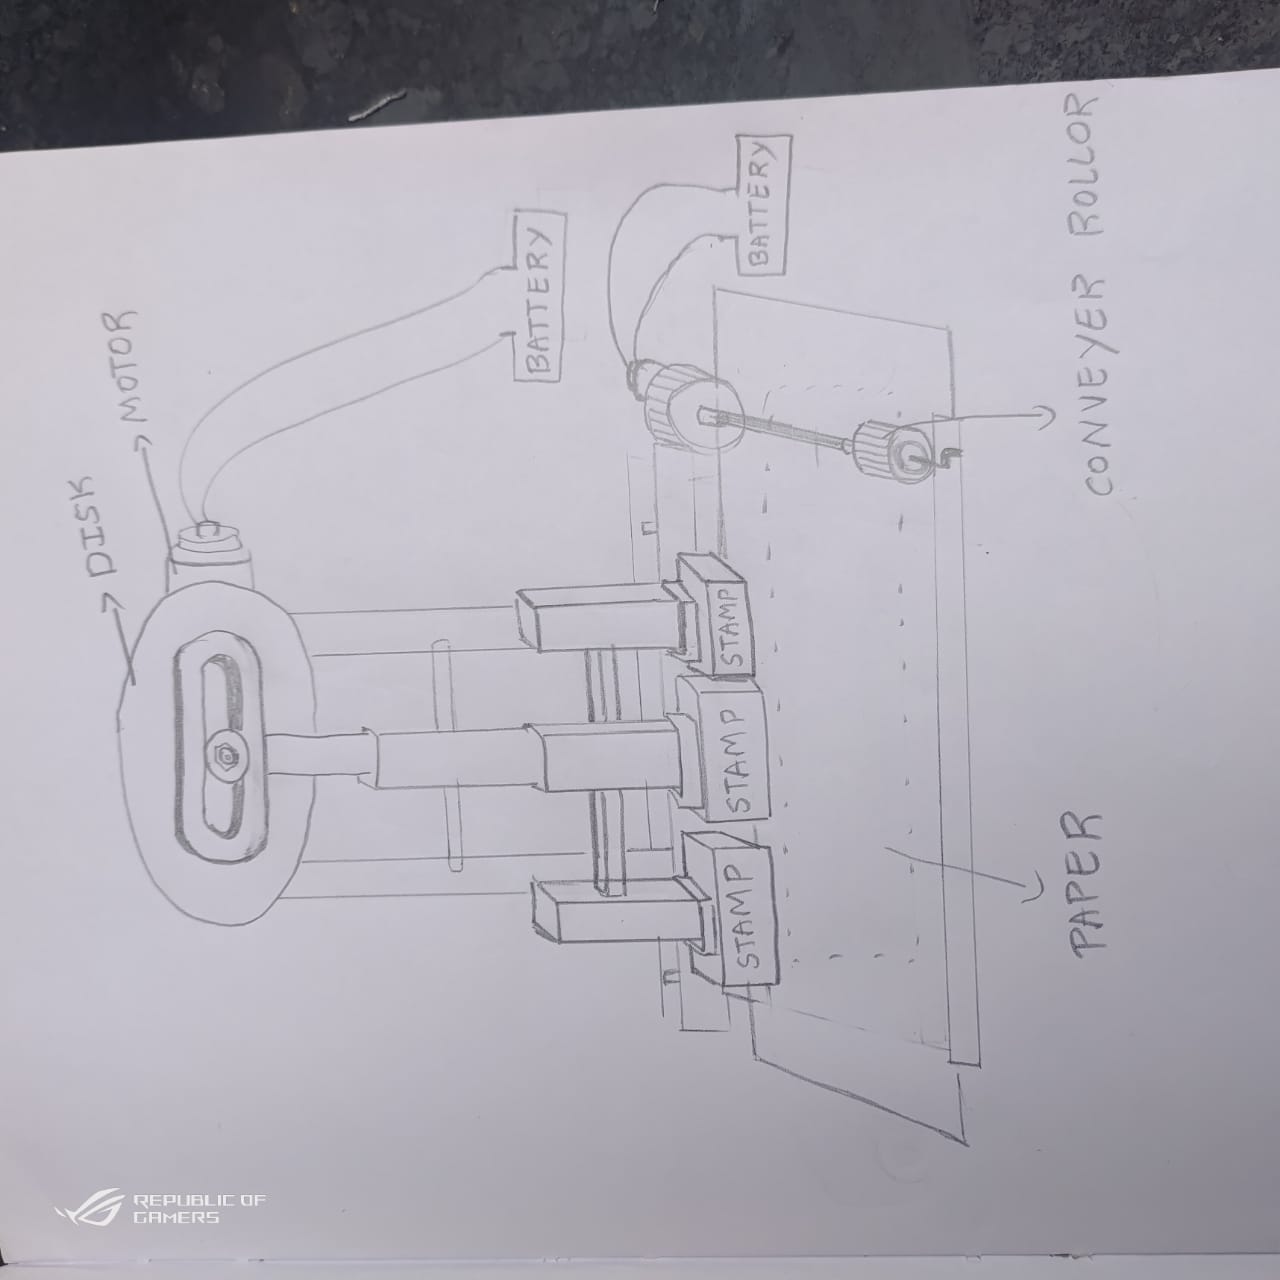 DISK
MOTOR
BATTERY
BATTERY
STAMP
STAMP
STAMP
CONVEYER ROLLOR
PAPER
REPUBLIC OF
GAMERS